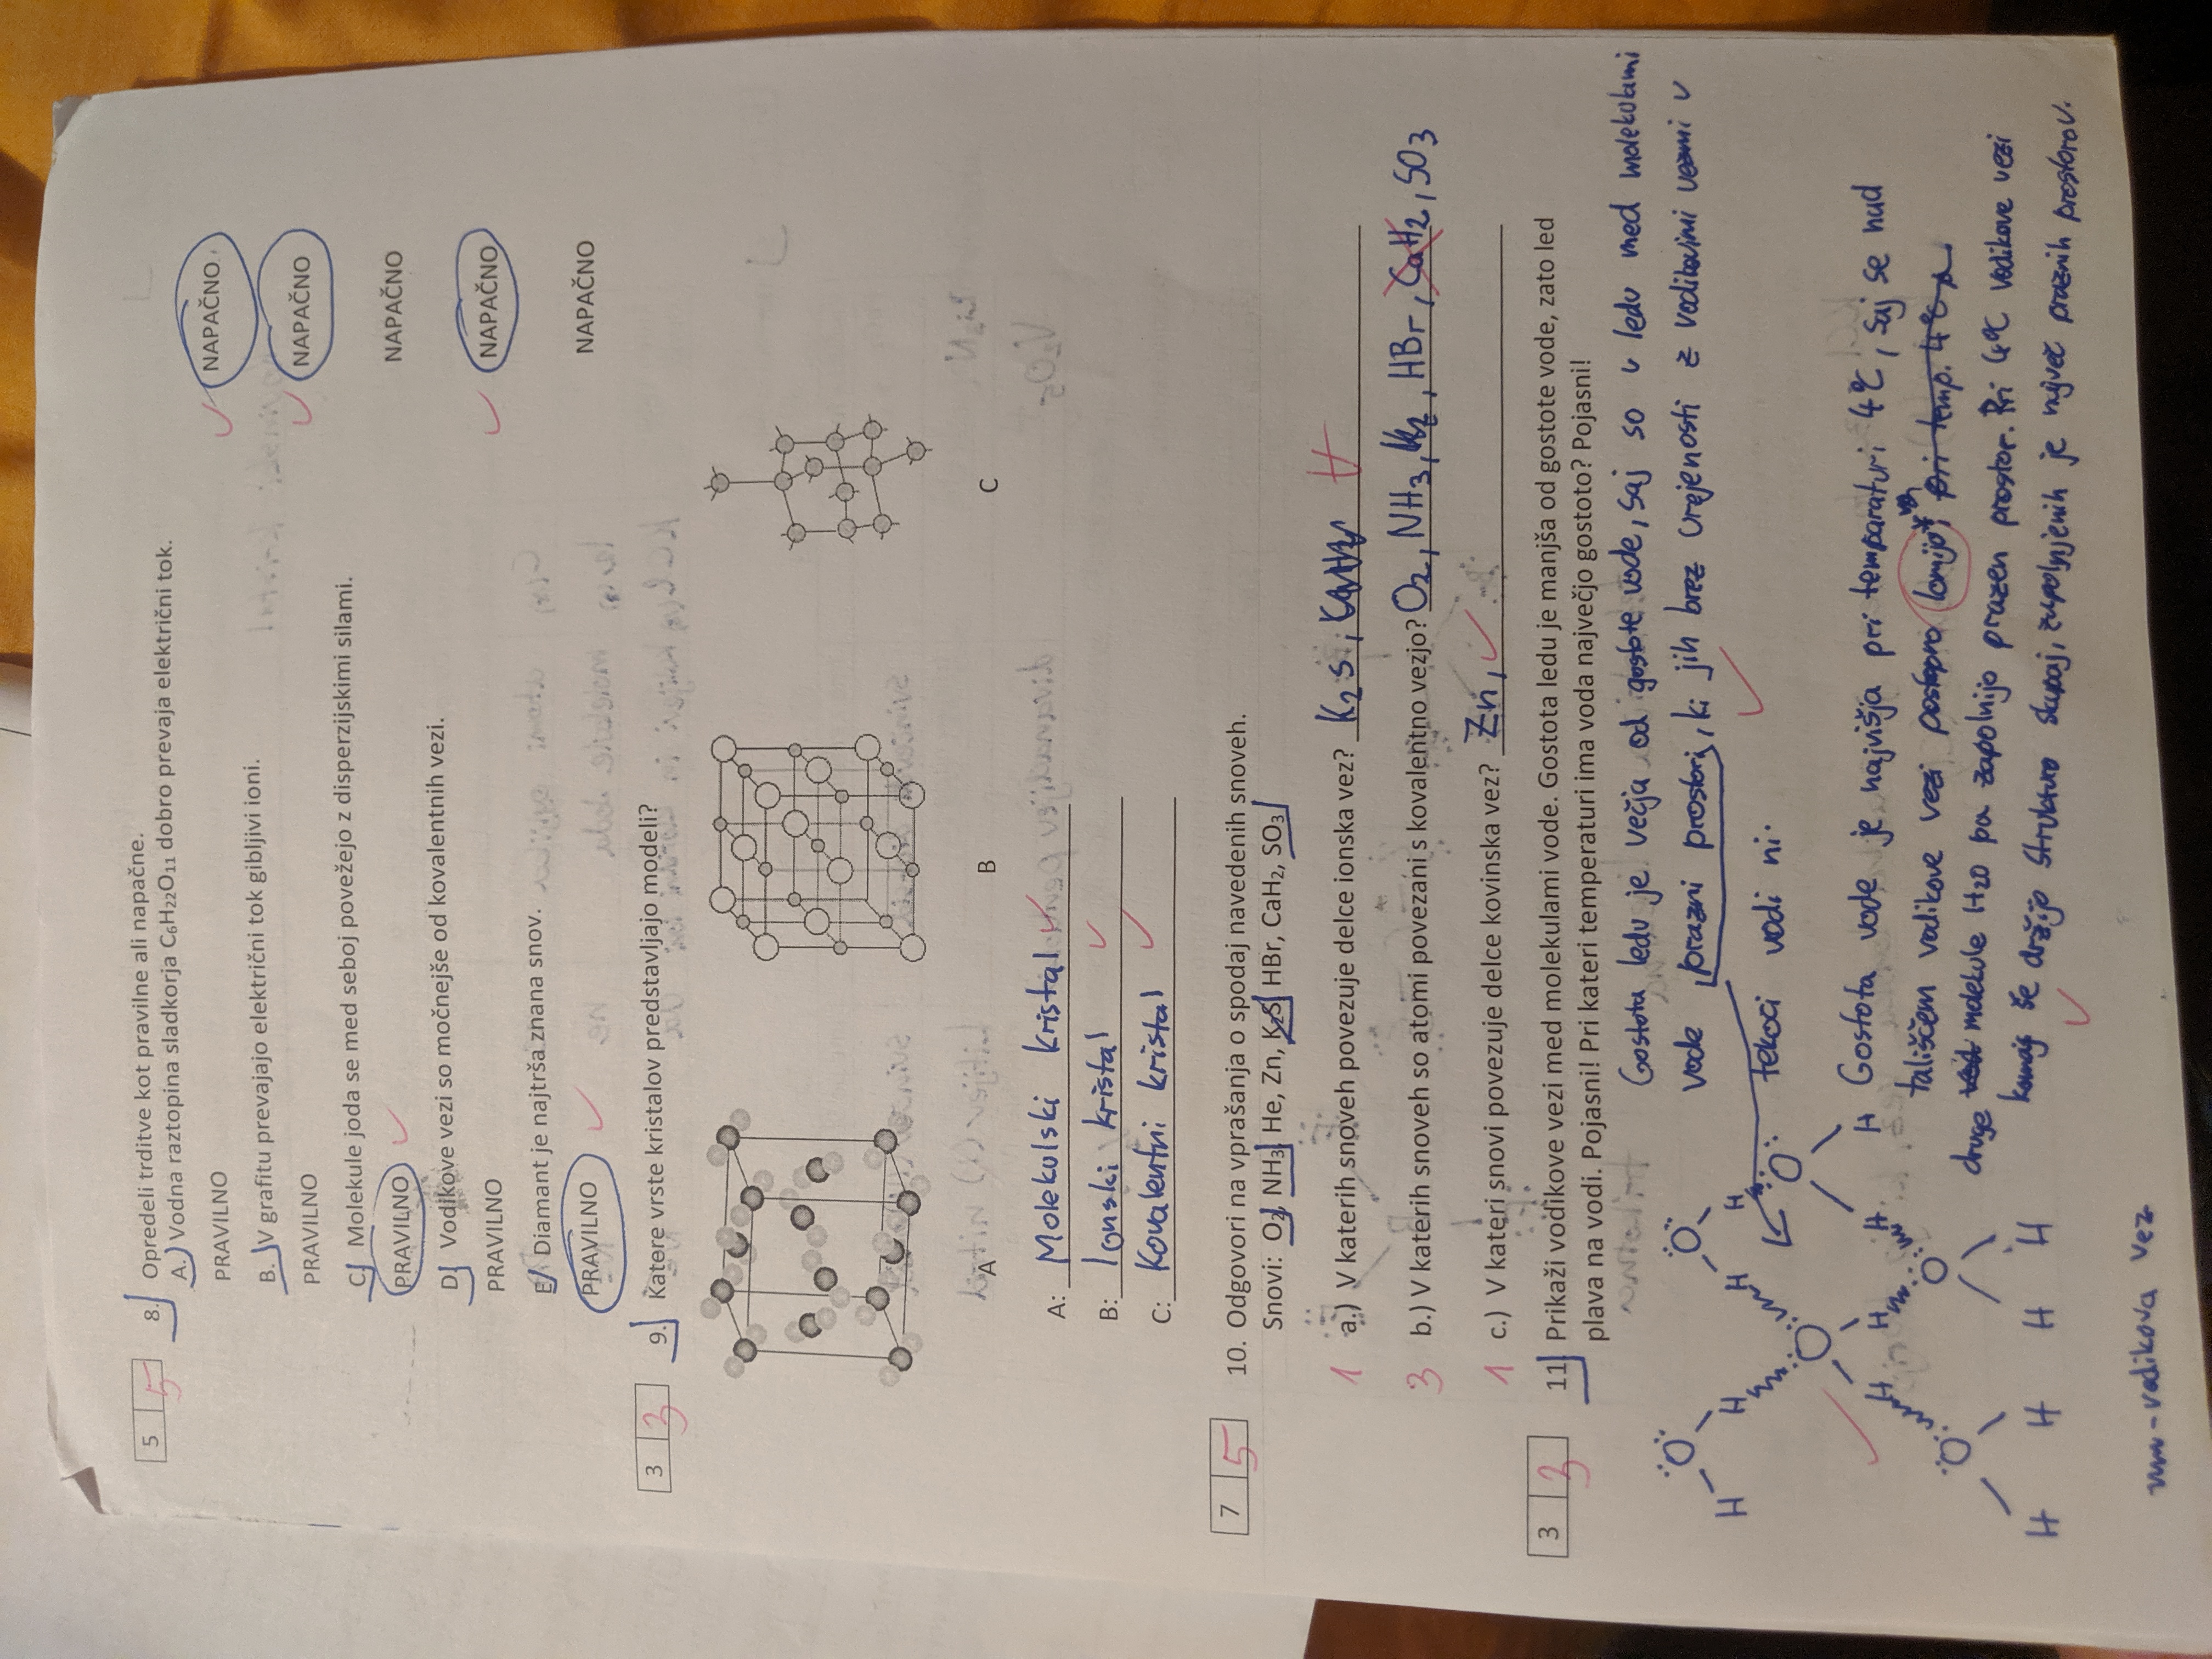 5 5 8. Opredeli trditve kot pravilne ali napačne.
A.) Vodna raztopina sladkorja C₆H₂₂O₁₁ dobro prevaja električni tok.
PRAVILNO NAPAČNO
B. V grafitu prevajajo električni tok gibljivi ioni.
PRAVILNO NAPAČNO
C. Molekule joda se med seboj povežejo z disperzijskimi silami.
PRAVILNO NAPAČNO
D. Vodikove vezi so močnejše od kovalentnih vezi.
PRAVILNO NAPAČNO
E. Diamant je najtrša znana snov.
PRAVILNO NAPAČNO
3 3 9. Katere vrste kristalov predstavljajo modeli?
A B C
A: Molekulski kristal
B: Ionski kristal
C: Kovalentni kristal
7 5 10. Odgovori na vprašanja o spodaj navedenih snoveh.
Snovi: O₂, NH₃, He, Zn, K₂S, HBr, CaH₂, SO₃
1 a.) V katerih snoveh povezuje delce ionska vez? K₂S, CaH₂
3 b.) V katerih snoveh so atomi povezani s kovalentno vezjo? O₂, NH₃, HBr, CaH₂, SO₃
1 c.) V kateri snovi povezuje delce kovinska vez? Zn,
3 3 11. Prikaži vodikove vezi med molekulami vode. Gostota ledu je manjša od gostote vode, zato led
plava na vodi. Pojasni! Pri kateri temperaturi ima voda največjo gostoto? Pojasni!
Gostota ledu je večja od gostote vode, saj so v ledu med molekulami
vode prazni prostori, ki jih brez urejenosti z vodikovimi vezmi v
tekoci vodi ni.
O O
H H H H
O
O
H H H H
O O
H H H H
Gostota vode je najvišja pri temparaturi 4°C, saj se nad
tališčem vodikove vezi postopno lomijo*, pri temp. 4°C
druge vod molekule H₂O pa zapolnijo prazen prostor. Pri 4°C vodikove vezi
komaj še držijo strukturo skupaj, zapolnjenih je največ praznih prostorov.
- vodikova vez